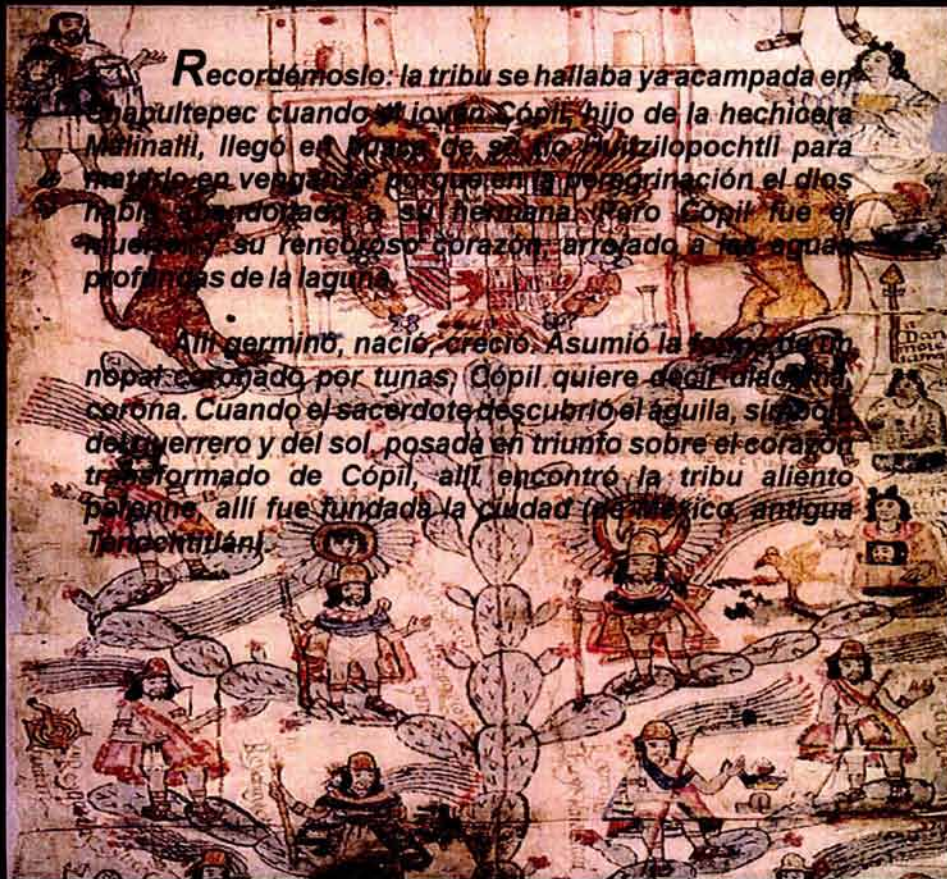 Recordémoslo: la tribu se hallaba ya acampada en
Chapultepec cuando el joven Cópil, hijo de la hechicera
Malinalli, llegó en busca de su tío Huitzilopochtli para
matarlo en venganza, porque en la peregrinación el dios
había abandonado a su hermana. Pero Cópil fue el
muerto, y su rencoroso corazón, arrojado a las aguas
profundas de la laguna.
Allí germinó, nació, creció. Asumió la forma de un
nopal coronado por tunas; Cópil quiere decir diadema,
corona. Cuando el sacerdote descubrió el águila, símbolo
del guerrero y del sol, posada en triunfo sobre el corazón
transformado de Cópil, allí encontró la tribu aliento
perenne, allí fue fundada la ciudad (de México, antigua
Tenochtitlán).